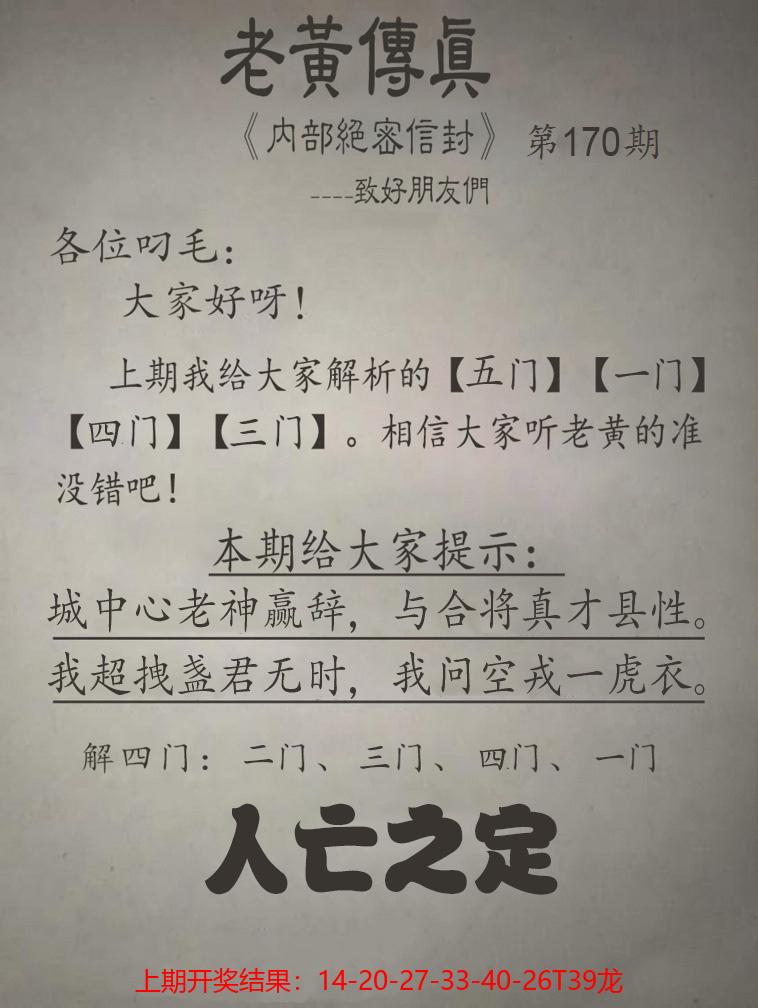 老黃傳眞
《内部絕密信封》 第170期
----致好朋友們
各位叼毛：
大家好呀！
上期我给大家解析的【五门】【一门】
【四门】【三门】。相信大家听老黄的准
没错吧！
本期给大家提示：
城中心老神赢辞，与合将真才县性。
我超拽盏君无时，我问空戎一虎衣。
解四门：二门、三门、四门、一门
人亡之定
上期开奖结果：14-20-27-33-40-26T39龙